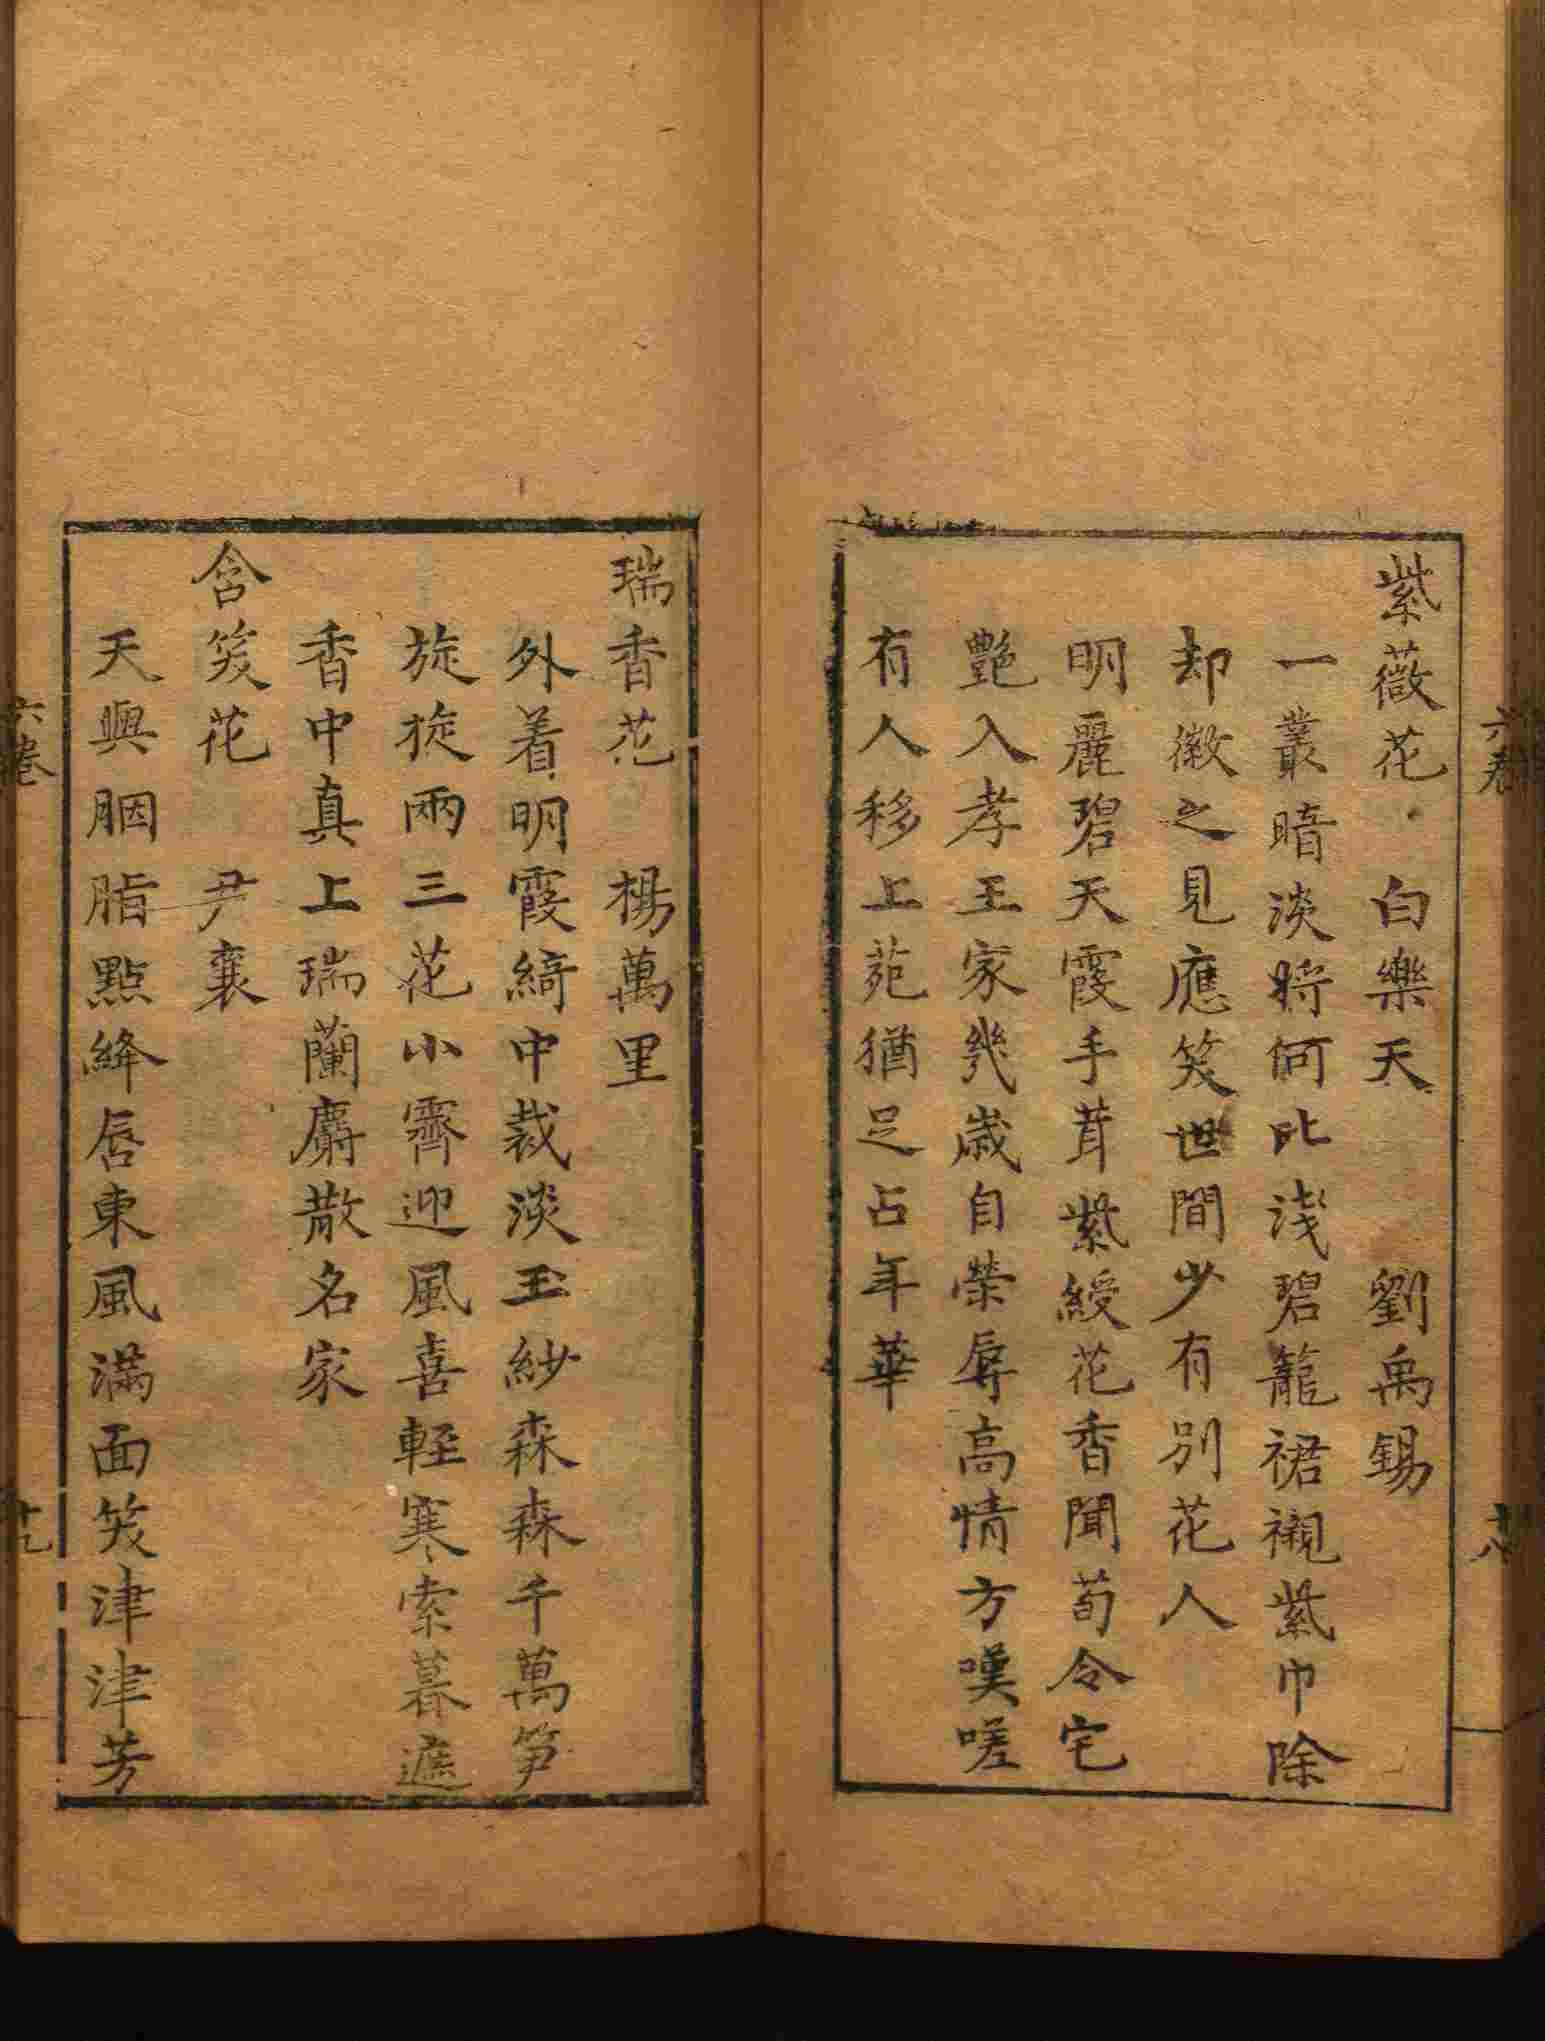 紫薇花 白樂天 劉禹錫
一叢暗淡將何比淺碧籠裙襯紫巾除
却微之見應笑世間少有別花人
明麗碧天霞手茸紫綬花香聞荀令宅
艷入孝王家幾歲自榮辱高情方嘆嗟
有人移上苑猶足占年華
六卷
十八
瑞香花 楊萬里
外着明霞綺中裁淡玉紗森森千萬笋
旋旋兩三花小霽迎風喜輕寒索暮遮
香中真上瑞蘭麝散名家
含笑花 尹襄
天與胭脂點絳唇東風滿面笑津津芳
六卷
十九